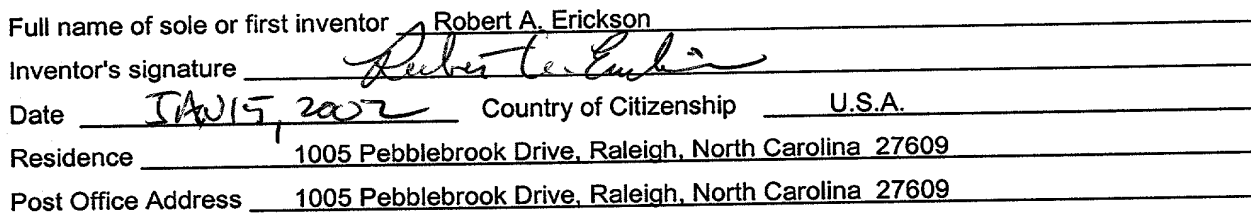 Full name of sole or first inventor Robert A. Erickson
Inventor's signature Robert A. Erickson
Date JAN 15, 2002 Country of Citizenship U.S.A.
Residence 1005 Pebblebrook Drive, Raleigh, North Carolina 27609
Post Office Address 1005 Pebblebrook Drive, Raleigh, North Carolina 27609